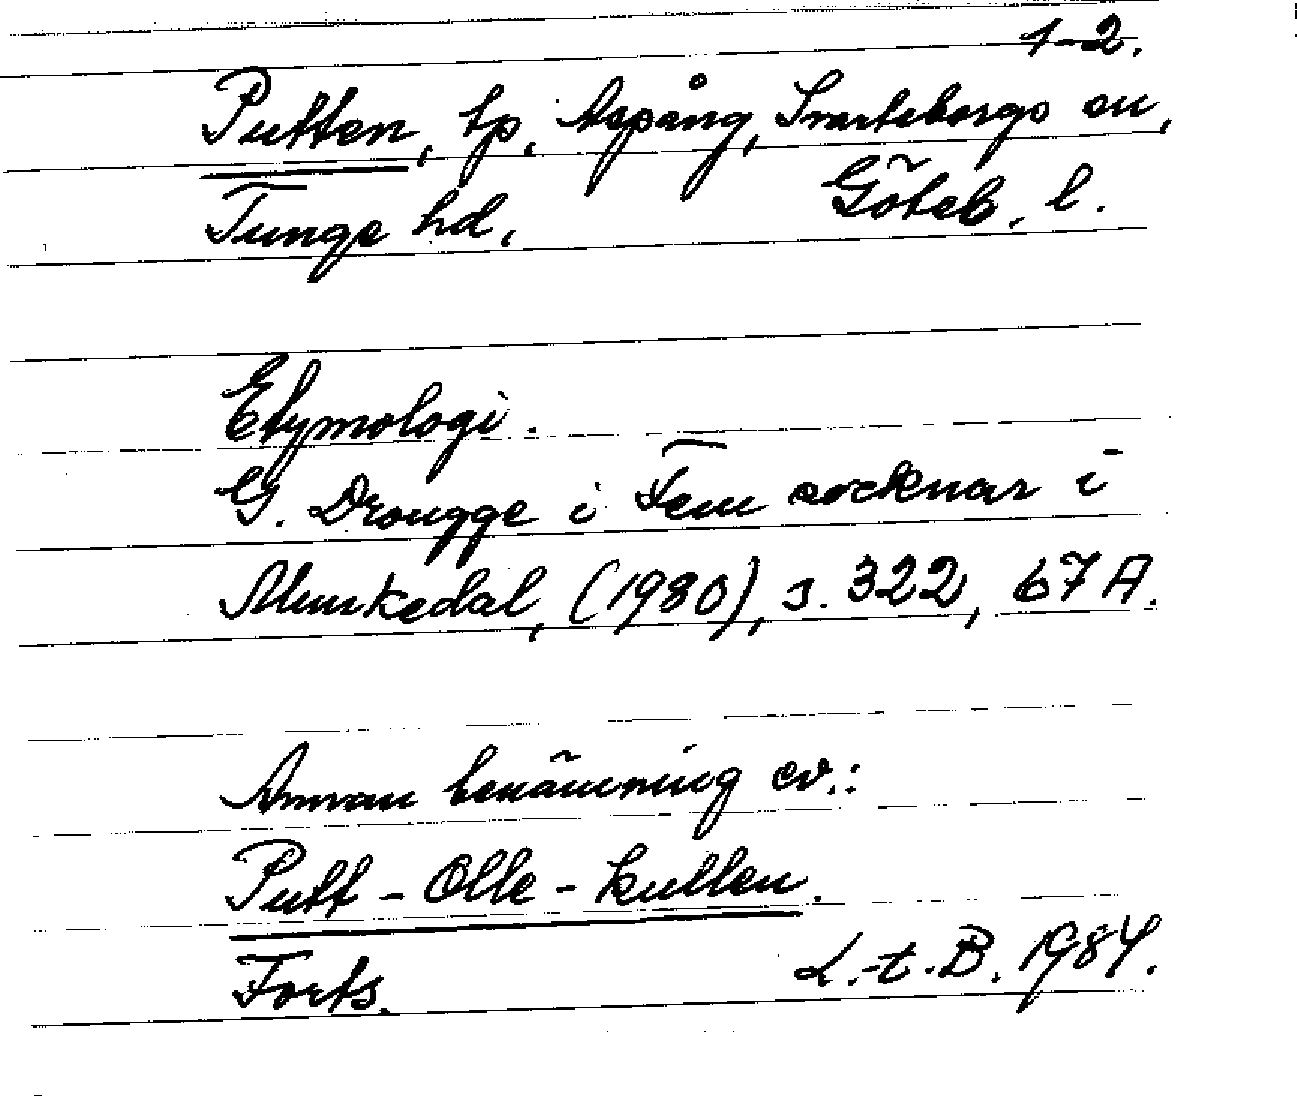 1-2.
Putten, tp, Aspång, Svarteborgs sn,
Tunge hd, Göteb. l.
Etymologi.
G. Drougge i Fem socknar i
Munkedal, (1980), s. 322, 67A.
Annan benämning ev.:
Putt-Olle-kullen.
Forts. L.-t.B. 1984.